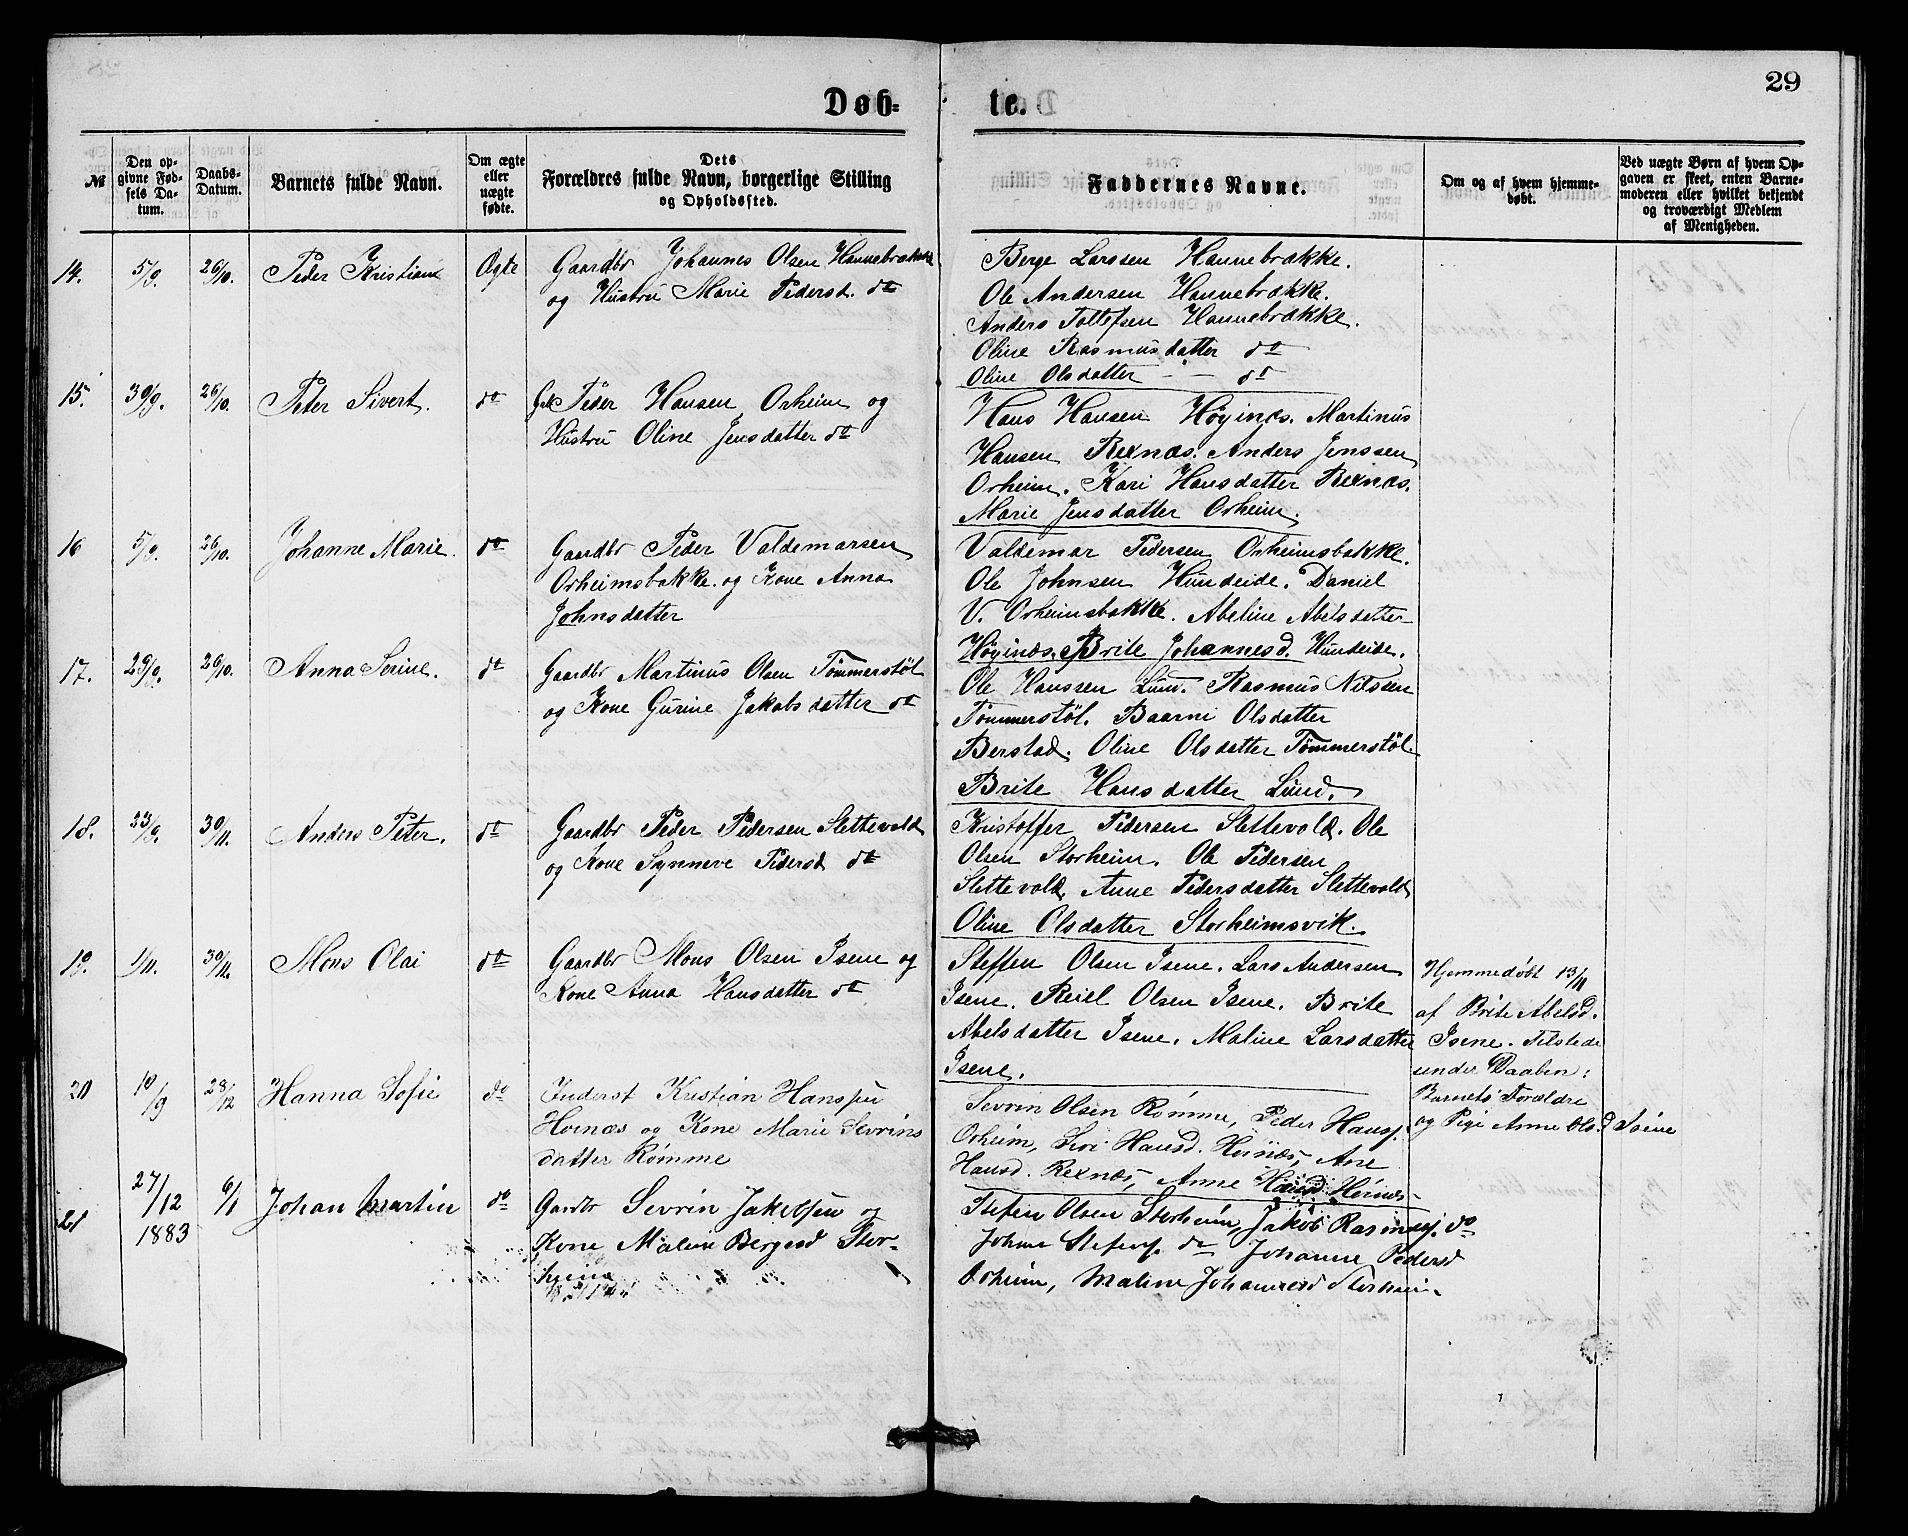 29
Døb-
te.
№
Den op-
givne Fød-
sels Da-
tum.
Daabs-
Datum.
Barnets fulde Navn.
Om ægte
eller
uægte
fødte.
Dets
Forældres fulde Navn, borgerlige Stilling
og Opholdssted.
Faddernes Navne.
Om og af hvem hjemme-
døbt.
Ved uægte Børn af hvem Op-
gaven er skeet, enten Barne-
moderen eller hvilket bekjendt
og troværdigt Medlem
af Menigheden.
14. 5/9. 26/10. Peder Kristian Ægte
Gaardbr Johannes Olsen Hannebrække
og Hustru Marie Pedersd. do
Berge Larssen Hannebrække.
Ole Andersen Hannebrække.
Anders Tollefsen Hannebrække.
Oline Rasmusdatter do
Oline Olsdatter do
15. 30/9. 26/10. Peter Sivert. do
Peder Hansen Orheim og
Hustru Oline Jensdatter do
Hans Hansen Høyinæs. Martinus
Hansen Rexnæs. Anders Jenssen
Orheim. Kari Hansdatter Rexnæs.
Marie Jensdatter Orheim.
16 5/9. 26/10. Johanne Marie. do
Gaardbr Peder Valdemarsen
Orheimsbakke. og Kone Anna
Johnsdatter
Valdemar Pedersen Orheimsbakke.
Ole Johnsen Hundeide. Daniel
V. Orheimsbakke. Abeline Abelsdatter
Høyinæs. Brite Johannesd. Hundeide.
17. 29/9. 26/10. Anna Serine. do
Gaardbr Martinus Olsen Tømmerstøl
og Kone Gurine Jakobsdatter do
Ole Hanssen Lund. Rasmus Nilssen
Tømmerstøl. Baarni Olsdatter
Berstad. Oline Olsdatter Tømmerstøl
Brite Hansdatter Lund.
18. 23/9. 30/11. Anders Peter. do
Gaardbr Peder Pedersen Slettevold
og Kone Synneve Pedersd do
Kristoffer Pedersen Slettevold. Ole
Olsen Storheim. Ole Pedersen
Slettevold, Anne Pedersdatter Slettevold
Oline Olsdatter Storheimsvik.
19. 1/11. 30/11. Mons Olai do
Gaardbr Mons Olsen Isene og
Kone Anna Hansdatter do
Steffen Olsen Isene. Lars Andersen
Isene. Reiel Olsen Isene. Brite
Abelsdatter Isene. Maline Larsdatter
Isene.
Hjemmedøbt 13/11
af Brite Abelsd.
Isene. Tilstede
under Daaben:
Barnets Forældre
og Pige Anne Olsd Isene
20 10/9 28/12 Hanna Sofie do
Inderst Kristian Hanssen
Hoinæs og Kone Marie Sevrins
datter Rømme
Sevrin Olsen Rømme, Peder Hansf.
Orheim, Sivi Hansd. Hoinæs, Ane
Hansd. Rexnæs, Anne Hansd Hoinæs
21 27/12 1883 6/1 Johan Martin do
Gardbr Sevrin Jakobsen og
Kone Maline Bergesd Stor-
heim
Stefen Olsen Storheim, Jakob Rasmusf. do
Johan Stefenf. do Johanne Pedersd
Orheim, Maline Johannesd Storheim.